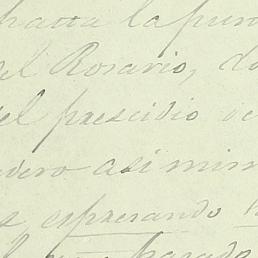 hasta la pun
del Rosario, do
del presidio oc
dero asi mism
s esperando
parado